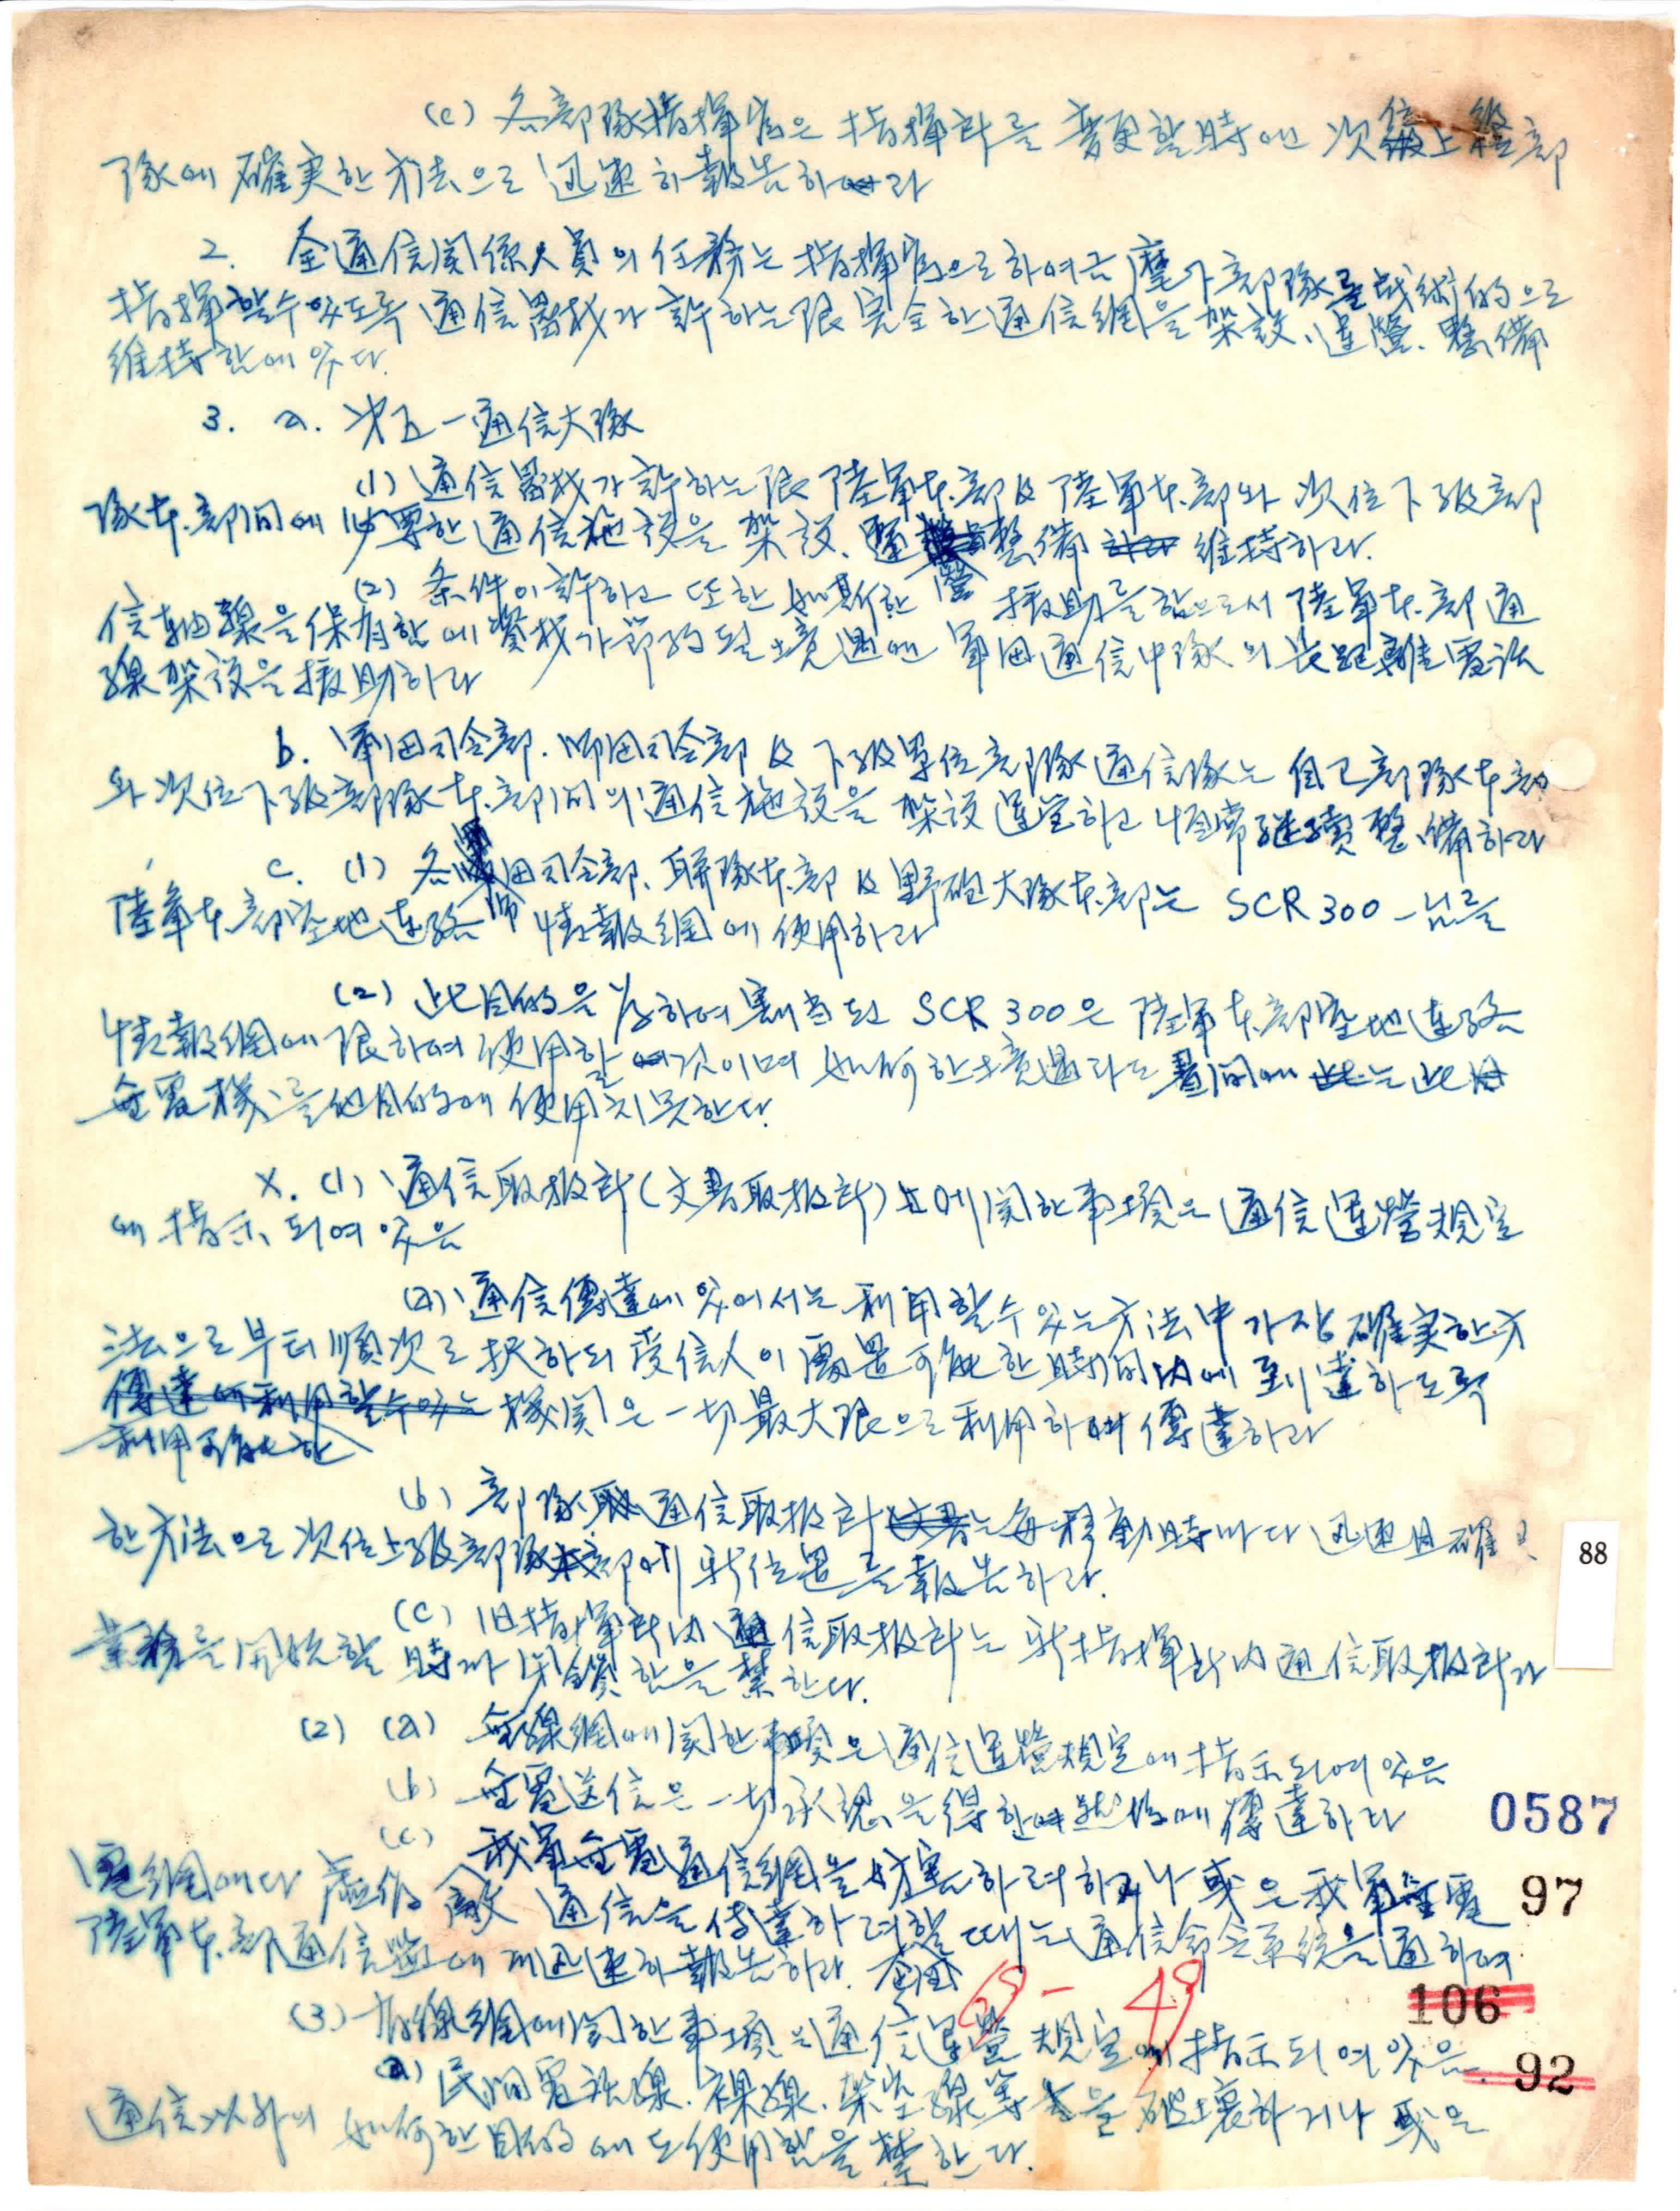 (c) 各部隊指揮官은 指揮所를 変更할時에는 次級上級部
隊에 確実한 方法으로 迅速히 報告하라
2. 全通信関係人員의 任務는 指揮官으로하여금 麾下部隊를 戦術的으로
指揮할수있도록 通信器材가 許하는限 完全한 通信網을 架設、運營、整備
維持함에 있다.
3. a. 第五一通信大隊
(1) 通信器材가 許하는限 陸軍本部 及 陸軍本部와 次位下級部
隊本部間에 必要한 通信施設을 架設、運營 整備 維持하라.
(2) 条件이 許하고 또한 如斯한 援助를 함으로서 陸軍本部 通
信軸線을 保有함에 資材가 節約될 境遇에는 軍団通信中隊의 長距離電話
線架設을 援助하라
b. 軍団司令部. 師団司令部 及 下級單位部隊 通信隊는 自己部隊本部
와 次位下級部隊本部間의 通信施設을 架設 運營하고 恒常継続 整備하라
c. (1) 各師団司令部、聯隊本部 及 野砲大隊本部는 SCR 300 一台를
陸軍本部空地連絡 情報網에 使用하라
(2) 此目的을 為하여 割当된 SCR 300은 陸軍本部空地連絡
情報網에 限하여 使用할 것이며 如何한 境遇라도 晝間에는 此
無電機를 他目的에 使用치못한다.
X. (1) 通信取扱所(文書取扱所)에 関한 事項은 通信運營規定
에 指示되여있음
(a) 通信傳達에 있어서는 利用할수있는 方法中 가장 確実한 方
法으로부터 順次로 択하되 受信人이 処置可能한 時間内에 到達하도록
傳達에 利用할수있는 機関은 一切 最大限으로 利用하여 傳達하라
利用可能한
(b) 部隊 通信取扱所는 每移動時마다 迅速且確実
한 方法으로 次位上級部隊本部에 新位置를 報告하라.
(c) 旧指揮所内 通信取扱所는 新指揮所内 通信取扱所가
業務를 開始할 時까지 閉鎖함을 禁한다.
(2) (a) 無線網에 関한 事項은 通信運營規定에 指示되여있음
(b) 無電送信은 一切 承認을 得한 然後에 傳達하라
(c) 我軍無電通信網을 妨害하려하거나 或은 我軍無電
電網에다 虛偽 敵 通信을 伝達하려할 때는 通信命令系統을 通하여
陸軍本部通信監에 迅速히 報告하라.
(3) 有線網에 関한 事項은 通信運營規定에 指示되여있음.
(a) 民間電話線. 裸線. 架空線等을 破壊하거나 或은
通信以外의 如何한 目的에도 使用함을 禁한다.
88
0587
97
106
92
49